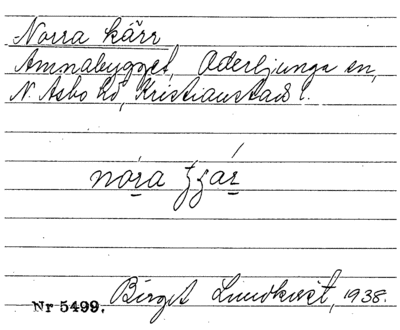 Norra kärr
Amnabygget, Oderljunga sn,
N. Åsbo hd, Kristianstads l.
Nr 5499. Birgit Lundkvist, 1938.